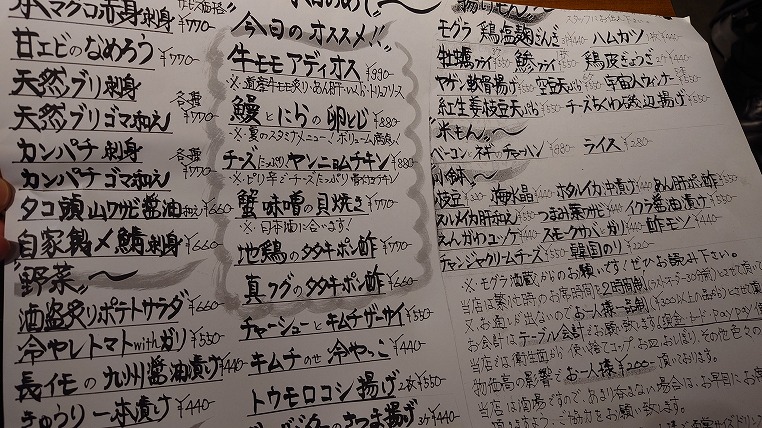 本マグロ赤身刺身 ¥770-
甘エビのなめろう ¥770-
天然ブリ刺身
天然ブリゴマ和え 各種 ¥770-
カンパチ刺身
カンパチゴマ和え 各種 ¥770-
タコ頭山ワサビ醤油和え ¥660-
自家製〆鯖刺身 ¥660-
"野菜"
酒盗炙りポテトサラダ ¥660-
冷やしトマトwithガリ ¥550-
長イモの九州醤油漬け ¥440-
きゅうり一本漬け ¥440-
今日のオススメ!!
牛モモアディオス ¥990-
鰻とにらの卵とじ ¥880-
※夏のスタミナメニュー!ボリューム満点!
チーズたっぷりヤンニョムチキン ¥880-
※ピリ辛でチーズたっぷり
蟹味噌の貝焼き ¥770-
※日本酒に合います!
地鶏のタタキポン酢 ¥770-
真フグのタタキポン酢 ¥660-
チャーシューとキムチザーサイ ¥550-
キムチのせ冷やっこ ¥440-
トウモロコシ揚げ 2枚 ¥550-
さつま揚げ 3ケ ¥440-
モグラ鶏塩麹ざんぎ ハムカツ ¥440-
牡蠣フライ 鯵フライ 鶏皮ぎょうざ
ヤゲン軟骨揚げ ¥550- 空豆天ぷら ¥550- 宇宙人ウィンナー ¥550-
紅生姜枝豆天ぷら ¥550- チーズちくわ磯辺揚げ ¥550-
"米もん"
ベーコンとネギのチャーハン ¥880- ライス ¥280-
"小鉢"
枝豆 ¥320- 梅水晶 ¥440- ホタルイカ沖漬け ¥440- あん肝ポン酢 ¥550-
スルメイカ肝和え ¥550- つまみ葉ワサビ ¥440- イクラ醤油漬け ¥550-
えんがわユッケ ¥440- スモークサバ ¥440- 酢モツ ¥440-
チャンジャクリームチーズ ¥550- 韓国のり ¥220-
※モグラ酒蔵からのお願いです!ぜひお読み下さい。
当店は繁忙時のお席時間を2時間制(ラストオーダー30分前)とさせて頂
又、お通しが出ないのでお一人様一品制(¥300以上の品から)とさせて頂
お会計はテーブル会計でお願い致します(現金・カード・PayPay使
当店では衛生面から使い捨てコップ、お皿、おしぼり、その他色々の
物価高の影響でお一人様¥200-頂いております。
当店は酒場ですので、あまり呑まない場合は、お早目にお席
頂きますよう、ご協力をお願い致します。